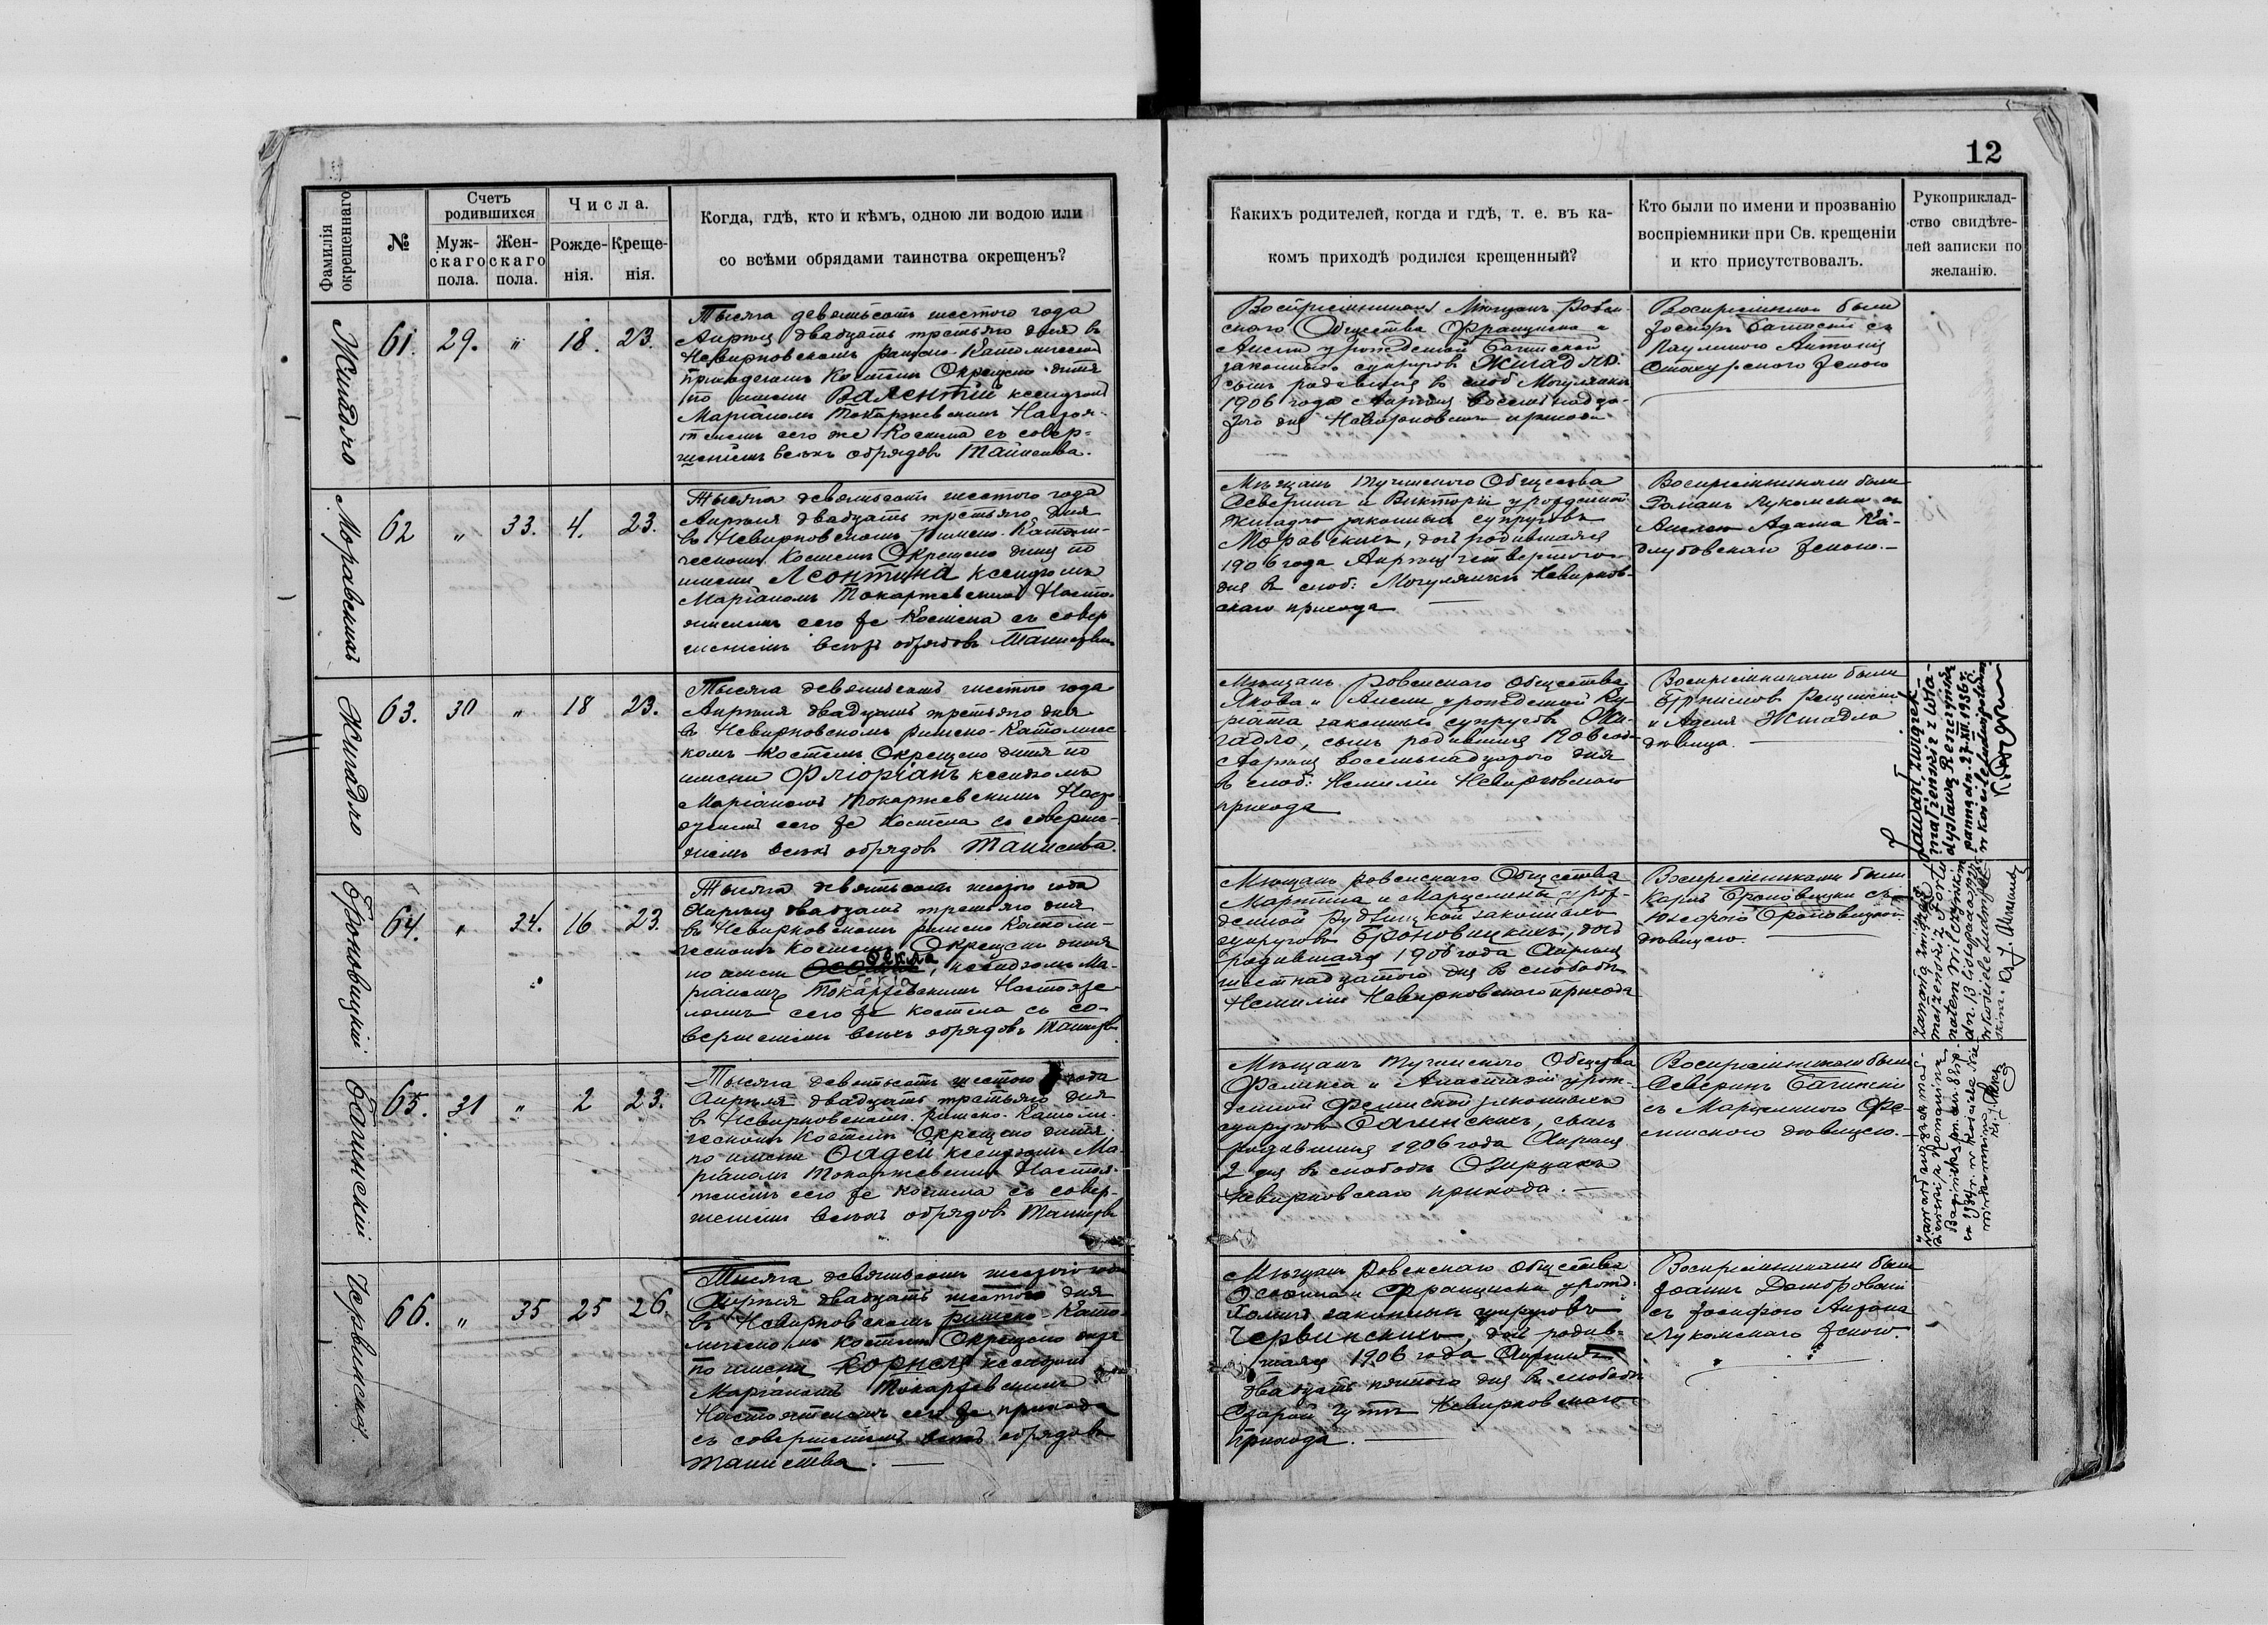 12
Фамилія окрещеннаго
№
Счетъ родившихся
Муж-скаго пола.
Жен-скаго пола.
Числа.
Рожде-нія.
Креще-нія.
Когда, гдѣ, кто и кѣмъ, одною ли водою или
со всѣми обрядами таинства окрещенъ?
Какихъ родителей, когда и гдѣ, т. е. въ ка-
комъ приходѣ родился крещенный?
Кто были по имени и прозванію
воспріемники при Св. крещеніи
и кто присутствовалъ.
Рукоприклад-
ство свидѣте-
лей записки по
желанію.
Жигадло
61. 29. " 18. 23.
Тысяча девятьсотъ шестого года
Апрѣля двадцать третьяго дня въ
Невирковскомъ Римско-Католическомъ
приходскомъ Костелѣ Окрещено дитя
по имени Валентій ксендзомъ
Маріаномъ Токаржевскимъ Настоя-
телемъ сего же Костела съ совер-
шеніемъ всѣхъ обрядовъ Таинства.
Мѣщанъ Ровен-
скаго Общества Франциска и
Анели урожденной Багинской
законныхъ супруговъ Жигадло
сынъ родившійся въ слоб Могулянкѣ
1906 года Апрѣля восемнадца-
того дня Невирковскаго прихода
Воспріемники были
Іосифъ Багинскій съ
Паулиною Антонія
женою
Моравскихъ
62 " 33. 4. 23.
Тысяча девятьсотъ шестого года
Апрѣля двадцать третьяго дня
въ Невирковскомъ Римско-Католи-
ческомъ Костелѣ Окрещено дитя по
имени Леонтина ксендзомъ
Маріаномъ Токаржевскимъ Насто-
ятелемъ сего же Костела съ совер
шеніемъ всѣхъ обрядовъ Таинства
Мѣщанъ Тучинского Общества
Северина и Викторіи урожденной
Жигадло законныхъ супруговъ
Моравскихъ, дочь родившаяся
1906 года Апрѣля четвертого
дня въ слоб: Могулянки Невирков-
скаго прихода
Воспріемниками были
Романъ Лукомскій съ
Адама Ка-
длубовскаго женою.
Жигадло
63. 30 " 18 23.
Тысяча девятьсотъ шестого года
Апрѣля двадцать третьяго дня
въ Невирковскомъ Римско-Католичес
комъ Костелѣ Окрещено дитя по
имени Флоріанъ ксендзомъ
Маріаномъ Токаржевскимъ Насто
ятелемъ сего же Костела съ соверше-
ніемъ всѣхъ обрядовъ Таинства.
Мѣщанъ Ровенскаго Общества
Якова и Анели урожденной
законныхъ супруговъ Жи-
гадло, сынъ родившійся 1906 года
Апрѣля восемьнадцатого дня
въ слоб: Немили Невирковскаго
прихода
Воспріемниками были
и Аделя Жигадло
дѣвица.
zawarł związek
małżeński z Wła-
dysławą Reszczyńską
panną dn. 27-XII.1936 r.
w Kościele
Броновицкій
64. " 34. 16 23.
Тысяча девятьсотъ шестого года
Апрѣля двадцать третьяго дня
въ Невирковскомъ Римско Католи-
ческомъ Костелѣ Окрещено дитя
по имени Ѳекла, ксендзомъ Ма-
ріаномъ Токаржевскимъ Настояте
лемъ сего же костела съ со-
вершеніемъ всѣхъ обрядовъ Таинства
Мѣщанъ Ровенскаго Общества
Мартина и Марцелины урож-
денной Рудзицкой законныхъ
супруговъ Броновицкихъ, дочь
родившаяся 1906 года Апрѣля
шестнадцатого дня въ слободѣ
Немили Невирковского прихода
Воспріемниками были
Карлъ Броновицкій съ
Юзефою Броновицкой
дѣвицею.
zawarła związek
małżeński z
dn. 13 listopada 1927 r.
w kościele
Багинскій
65. 31 " 2 23.
Тысяча девятьсотъ шестого года
Апрѣля двадцать третьяго дня
въ Невирковскомъ Римско-Католи-
ческомъ Костелѣ Окрещено дитя
по имени Ѳадей ксендзомъ Ма-
ріаномъ Токаржевскимъ Настоя-
телемъ сего же костела съ совер-
шеніемъ всѣхъ обрядовъ Таинства
Мѣщанъ Тучинского Общества
Феликса и Анастазіи урож-
денной законныхъ
супруговъ Багинскихъ, сынъ
родившійся 1906 года Апрѣля
2 дня въ слободѣ Озирцахъ
Невирковскаго прихода.
Воспріемниками были
Северинъ Багинскій
съ Марцелиною
дѣвицею.
zawarł związek mał-
żeński z
Bagińską
w 1934 r. w kościele
Червинская
66. " 35 25 26.
Тысяча девятьсотъ шестого года
Апрѣля двадцать шестого дня
въ Невирковскомъ Римско-Като-
лическомъ Костелѣ Окрещено дитя
по имени Корнеля ксендзомъ
Маріаномъ Токаржевскимъ
Настоятелемъ сего же прихода
съ совершеніемъ всѣхъ обрядовъ
Таинства.
Мѣщанъ Ровенскаго Общества
и Франциски урожд:
законныхъ супруговъ
Червинскихъ, дочь родив-
шаяся 1906 года Апрѣля
двадцать пятого дня въ слободѣ
Старой Гутѣ Невирковскаго
прихода.
Воспріемниками были
Іоаннъ Домбровскій
съ Іозефою Антона
Лукомскаго женою.